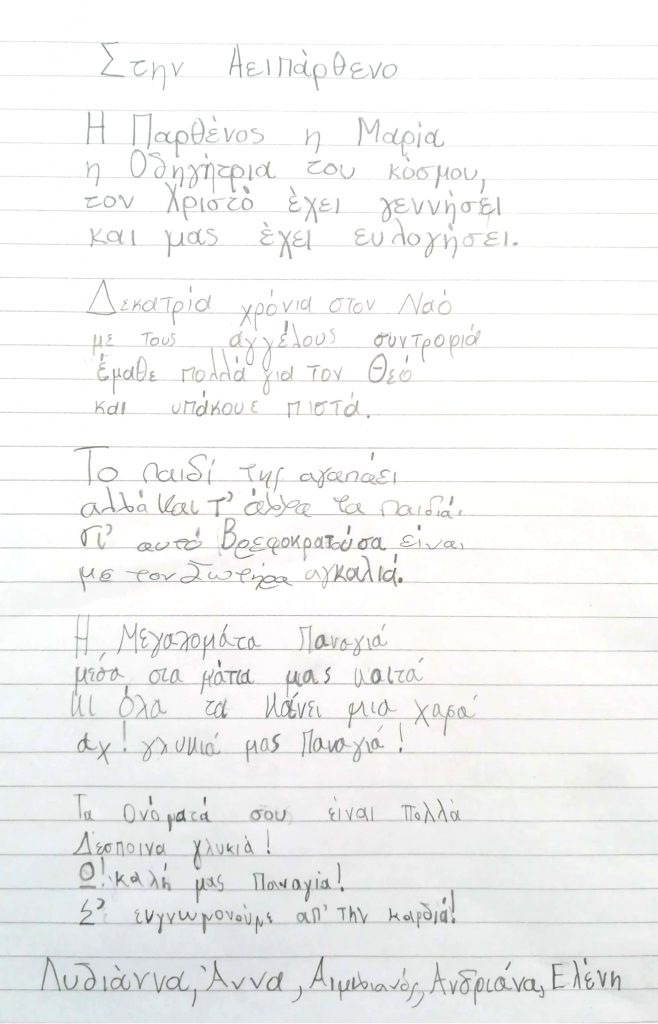 Στην Αειπάρθενο
Η Παρθένος η Μαρία
η Οδηγήτρια του κόσμου,
τον Χριστό έχει γεννήσει
και μας έχει ευλογήσει.
Δεκατρία χρόνια στον Ναό
με τους αγγέλους συντροφιά
έμαθε πολλά για τον Θεό
και υπάκουε πιστά.
Το παιδί της αγαπάει
αλλά και τ' άλλα τα παιδιά.
Γι' αυτό Βρεφοκρατούσα είναι
με τον Σωτήρα αγκαλιά.
Η Μεγαλομάτα Παναγιά
μέσα στα μάτια μας κοιτά
κι όλα τα κάνει μια χαρά
αχ! γλυκιά μας Παναγιά!
Τα Ονόματά σου είναι πολλά
Δέσποινα γλυκιά!
Ω! καλή μας Παναγία!
Σ' ευγνωμονούμε απ' την καρδιά!
Λυδιάννα, Άννα, Αιμιλιανός, Ανδριάνα, Ελένη